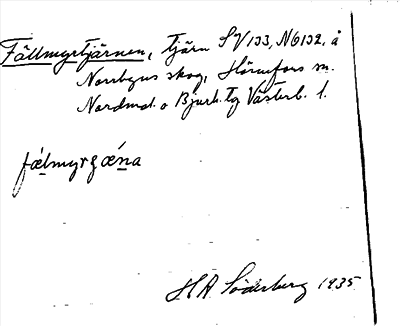 Fällmyrtjärnen, tjärn SV133, NG132, å
Norrbyns skog, Hörnefors sn.
Nordmal. o Bjurh. Tg Västerb. l.
fælmyrʒǽna
HA Söderberg 1935